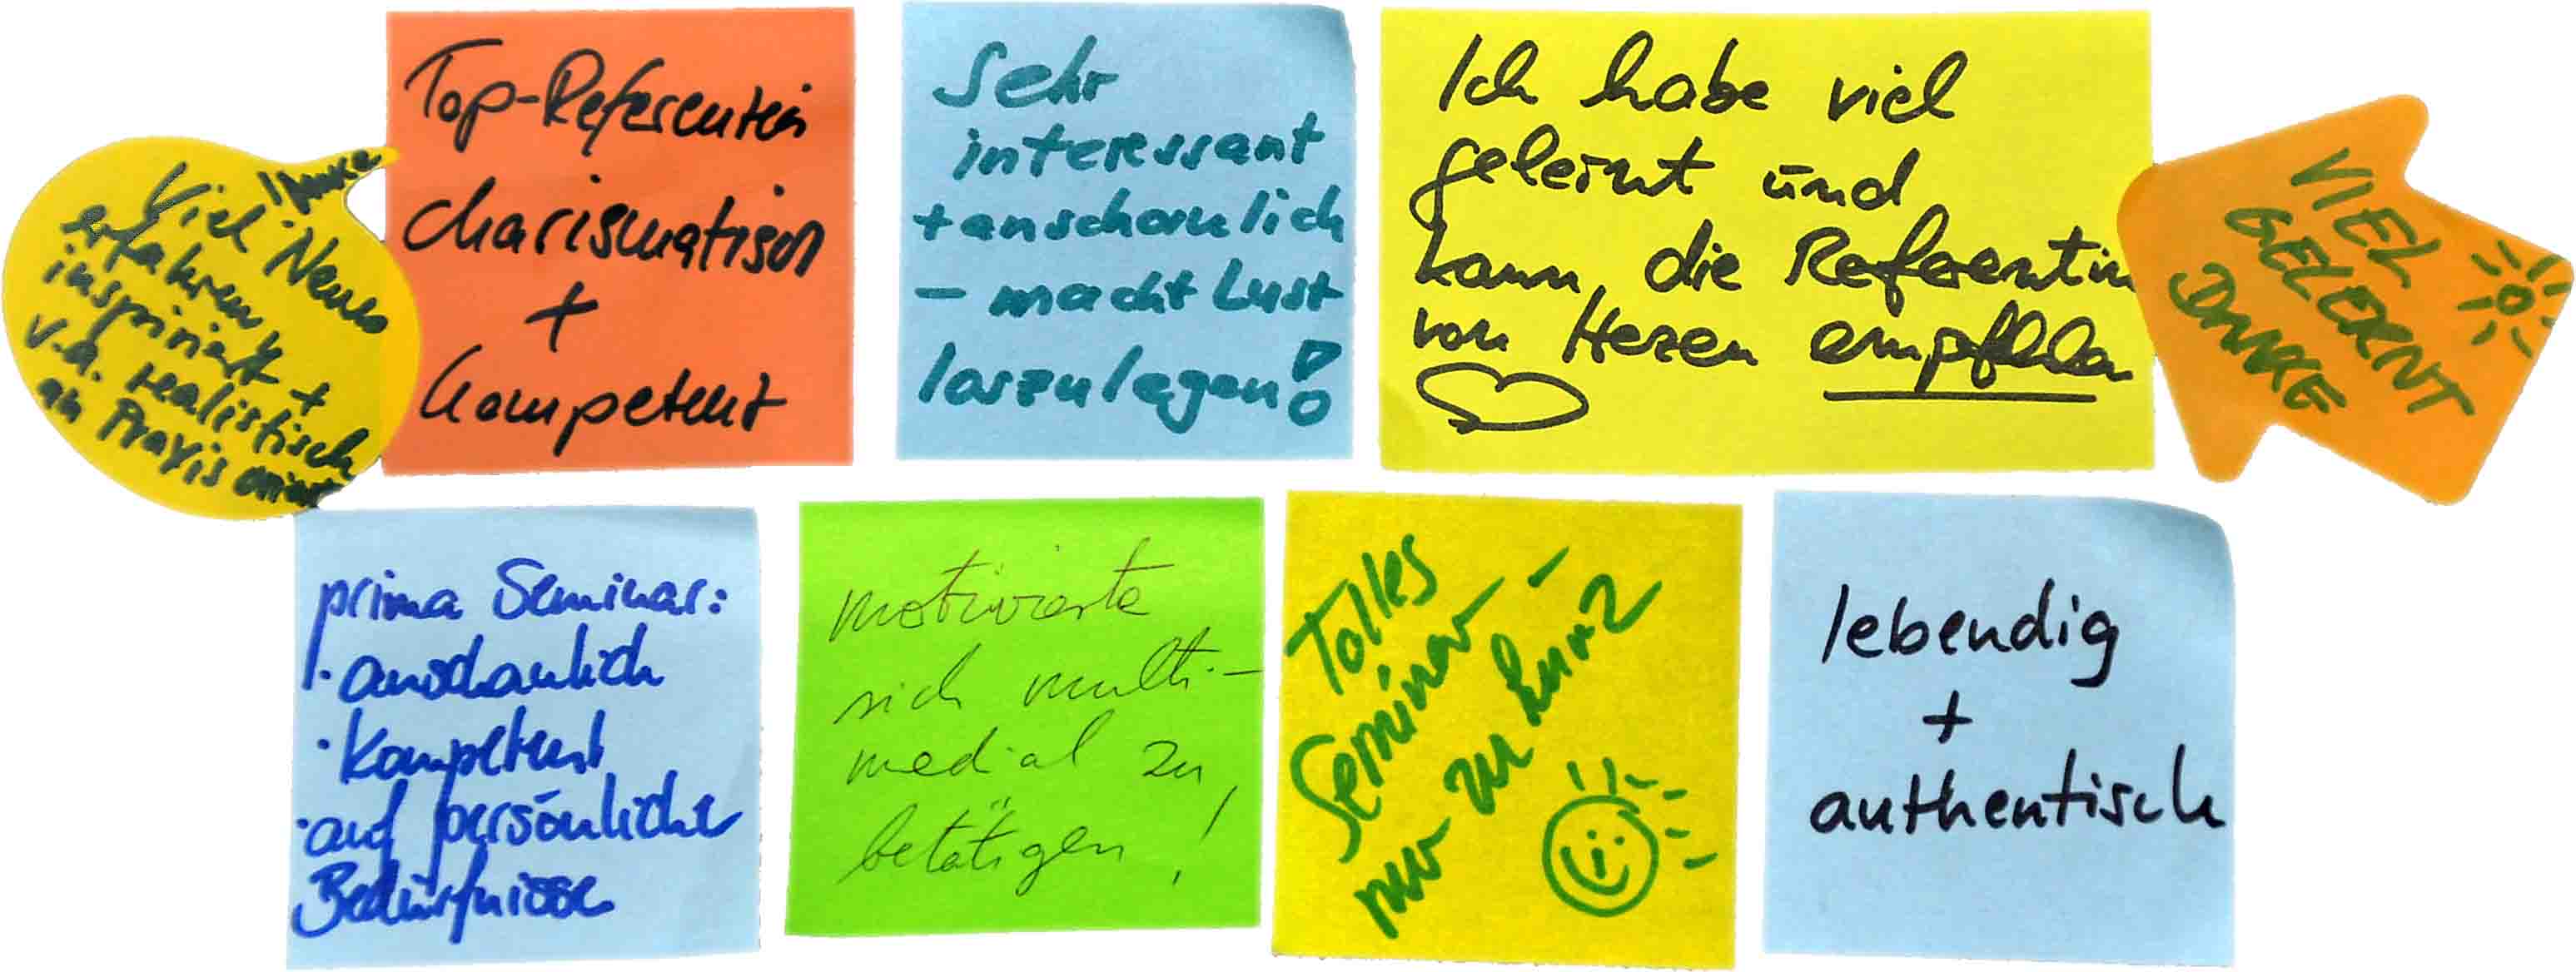 Danke
Viel Neues
erfahren,
inspiriert +
v.a. realistisch
an Praxis
Top-Referentin
charismatisch
+
kompetent
Sehr
interessant
+ anschaulich
- macht Lust
loszulegen!
Ich habe viel
gelernt und
kann die Referentin
von Herzen empfehlen
VIEL
GELERNT
DANKE
prima Seminar:
· anschaulich
· kompetent
· auf persönliche
Bedürfnisse
motivierte
sich multi-
medial zu
betätigen!
Tolles
Seminar -
nur zu kurz
lebendig
+
authentisch